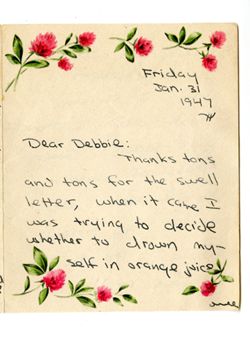 Friday
Jan. 31
1947
Dear Debbie:
Thanks tons
and tons for the swell
letter, when it came I
was trying to decide
whether to drown my-
self in orange juice